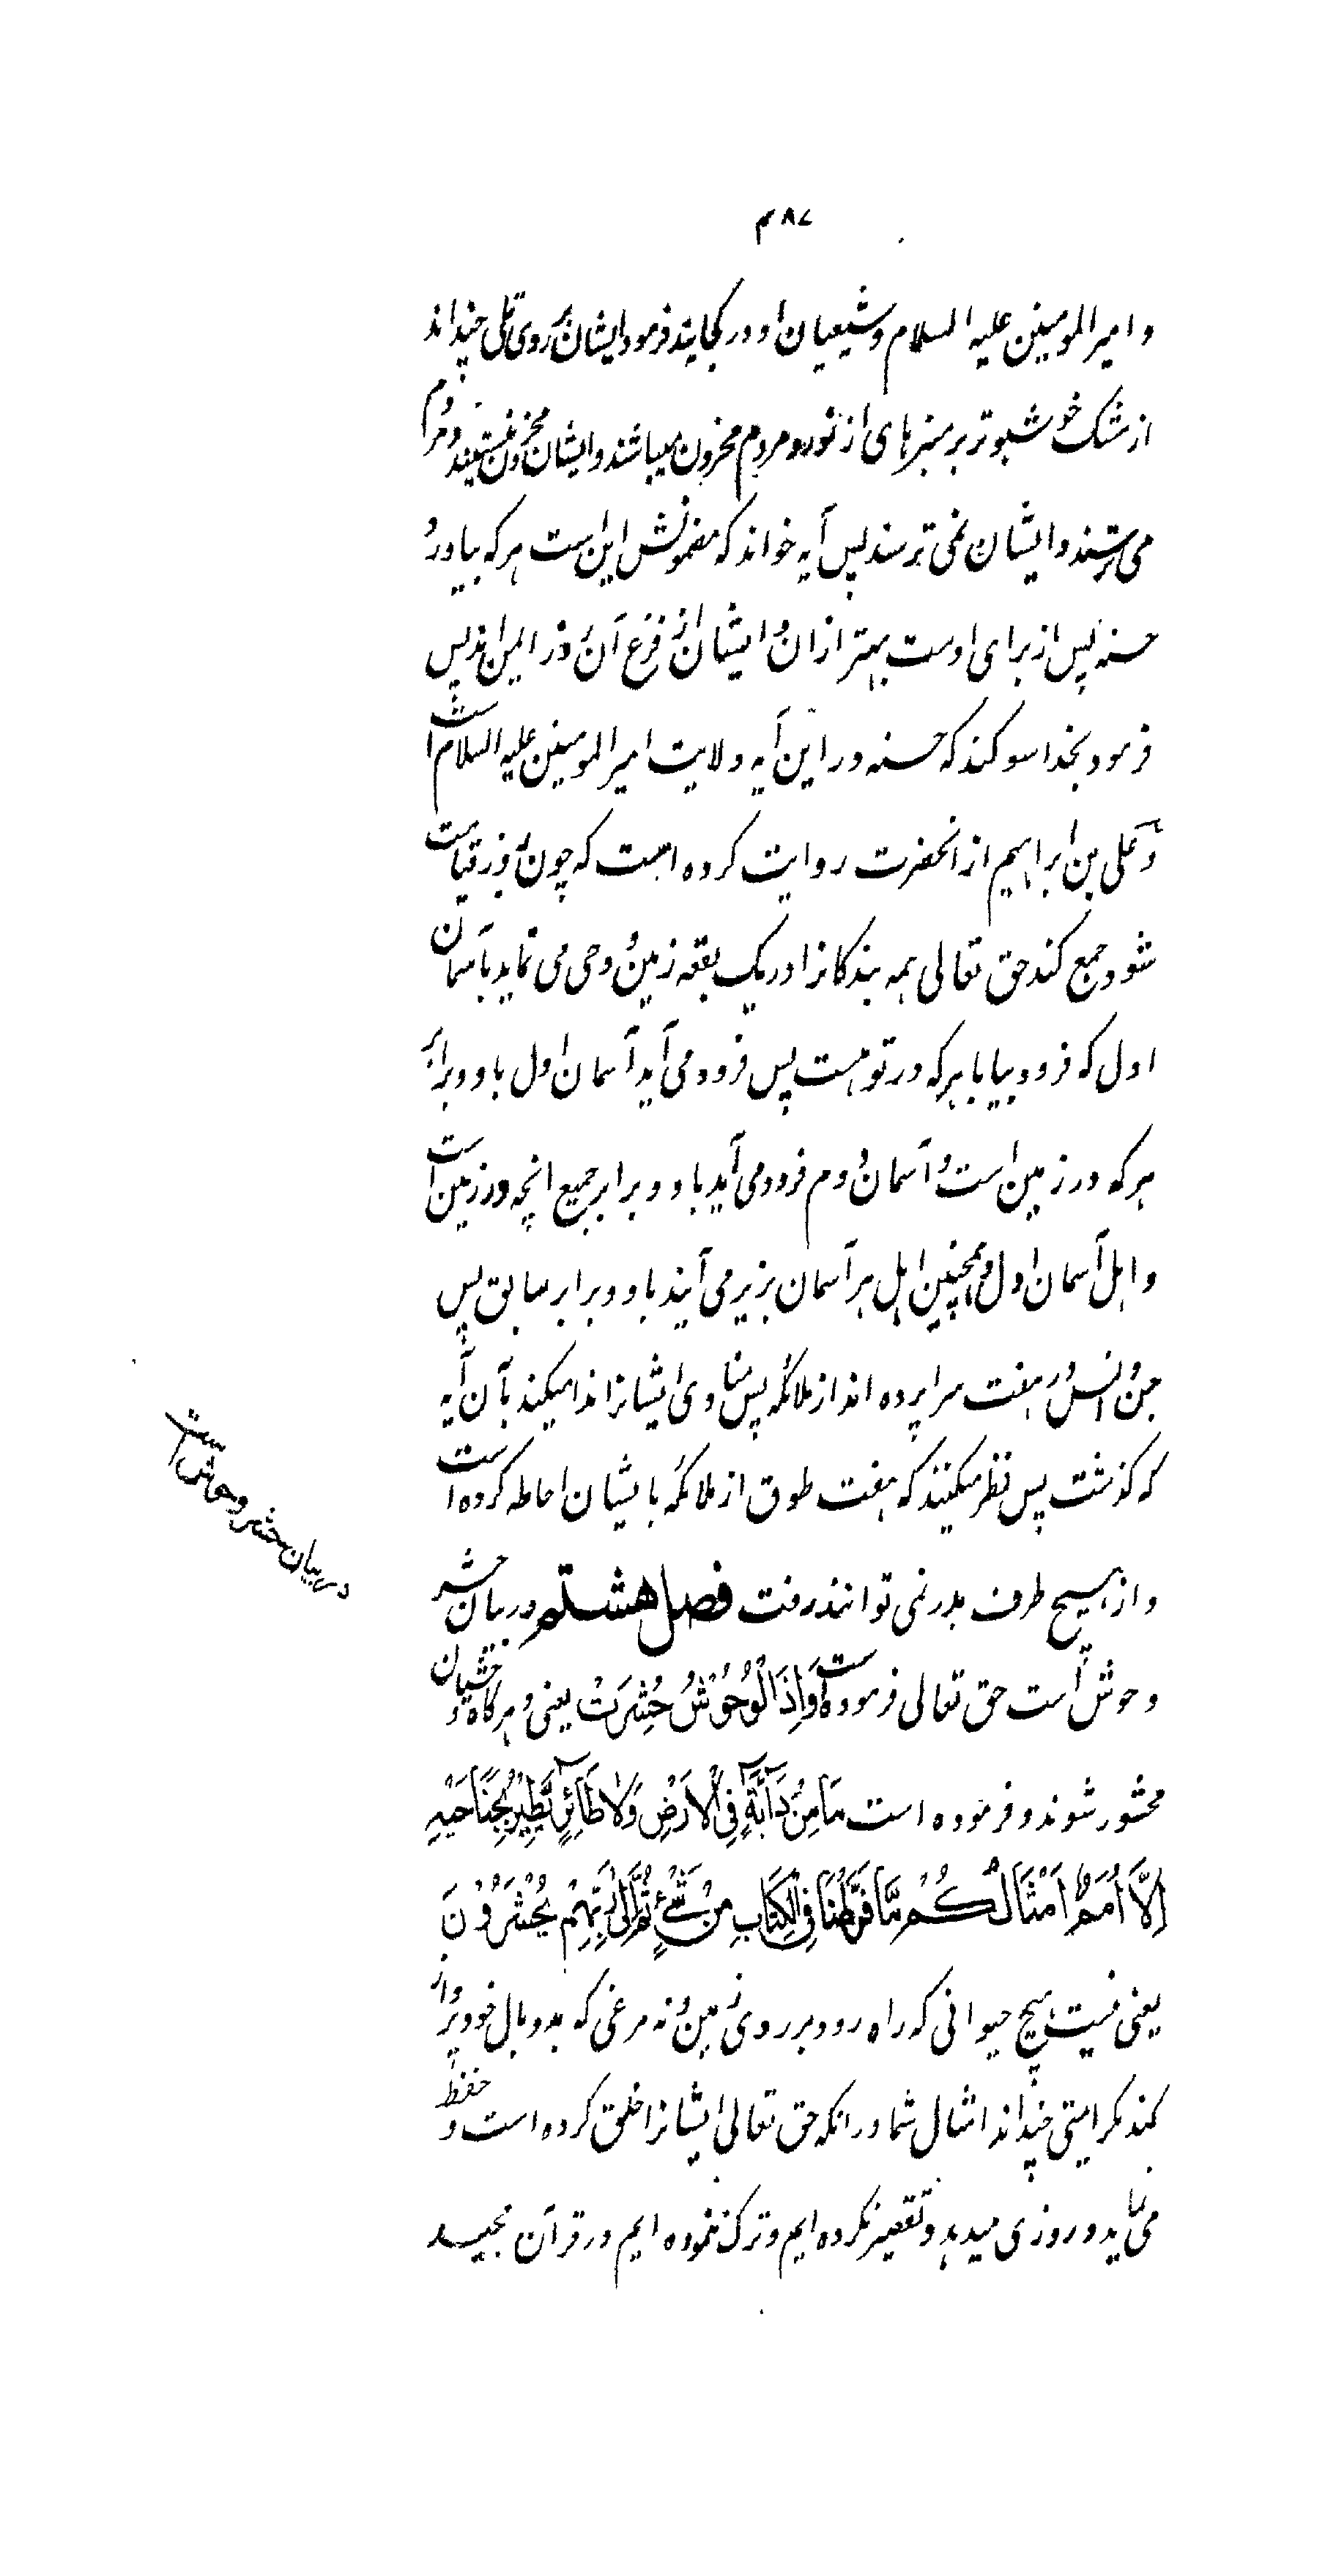 ۴۸۷
و امیر المومنین علیه السلام و شیعیان او در کجایند فرمود ایشان بر روی تلی چند اند
از مشک خوشبو تر بر منبرهای از نور و مردم محزون میباشند و ایشان محزون نیستند و مردم
می ترسند و ایشان نمی ترسند پس آیه خواند که مضمونش این است هر که بیاورد
حسنه پس از برای اوست بهتر ازان و ایشان از فزع آن روز ایمن اند پس
فرمود بخدا سوکند که حسنه در این آیه ولایت امیر المومنین علیه السلام است
و علی بن ابراهیم از انحضرت روایت کرده است که چون روز قیامت
شود جمع کند حق تعالی همه بندکانرا در یک بقعه زمین و وحی می نماید باسمان
اول که فرود بیا با هر که در تو هست پس فرود می آید آسمان اول با دو برابر
هر که در زمین است و آسمان دوم فرود می آید با دو برابر جمیع انچه در زمین است
و اهل آسمان اول و همچنین اهل هر آسمان بزیر می آیند با دو برابر سابق پس
جن و انس در هفت سراپرده اند از ملائکه پس منادی ایشانرا ندا میکند بآن آیه
که کذشت پس نظر میکنند که هفت طوق از ملائکه بایشان احاطه کرده است
و از هیچ طرف بدر نمی توانند رفت فصل هشتم در بیان حشر
در بیان حشر وحوش است
وحوش است حق تعالی فرموده است وَاِذَا الْوُحُوْشُ حُشِرَتْ یعنی و هرکاه وحشیان
محشور شوند و فرموده است مَا مِنْ دَآبَّةٍ فِی الْاَرْضِ وَلَا طَآئِرٍ یَّطِیْرُ بِجَنَاحَیْهِ
اِلَّا اُمَمٌ اَمْثَالُکُمْ مَا فَرَّطْنَا فِی الْکِتَابِ مِنْ شَیْءٍ ثُمَّ اِلٰی رَبِّهِمْ یُحْشَرُوْنَ
یعنی نیست هیچ حیوانی که راه رود بر روی زمین و نه مرغی که بدو بال خود پرواز
کند مکر امتی چند اند امثال شما در انکه حق تعالی ایشانرا خلق کرده است و حفظ
می نماید و روزی میدهد و تقصیر نکرده ایم و ترک ننموده ایم در قرآن مجید